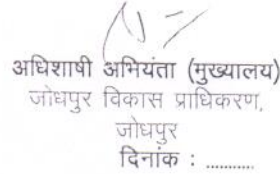 अधिशाषी अभियंता (मुख्यालय)
जोधपुर विकास प्राधिकरण,
जोधपुर
दिनांक : ..........